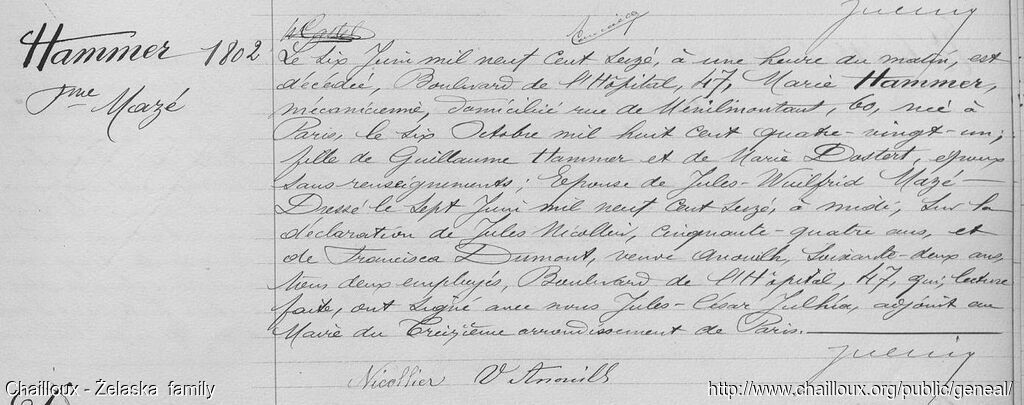 Julhia
Hammer 1802
fme Mazé
Le six Juin mil neuf cent seize, à une heure du matin, est
décédée, Boulevard de l'Hôpital, 47, Marie Hammer,
mécanicienne, domiciliée rue de Ménilmontant, 60, née à
Paris, le six Octobre mil huit cent quatre-vingt-un;
fille de Guillaume Hammer et de Marie Dostert, époux
sans renseignements; Epouse de Jules-Wuilfrid Mazé —
Dressé le sept Juin mil neuf cent seize, à midi, sur la
déclaration de Jules Nicollier, cinquante-quatre ans, et
de Francisca Dumont, veuve Anouilh, soixante-deux ans,
tous deux employés, Boulevard de l'Hôpital, 47, qui, lecture
faite, ont signé avec nous Jules-César Julhia, adjoint au
Maire du Treizième arrondissement de Paris. —
Julhia
Nicollier V Anouilh
Chailloux - Żelaska family
http://www.chailloux.org/public/geneal/